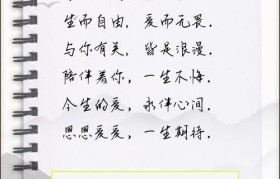 生而自由，爱而无畏.
与你有关，皆是浪漫.
陪伴着你，一生不悔.
今生的爱，永伴心间.
恩恩爱爱，一生期待.